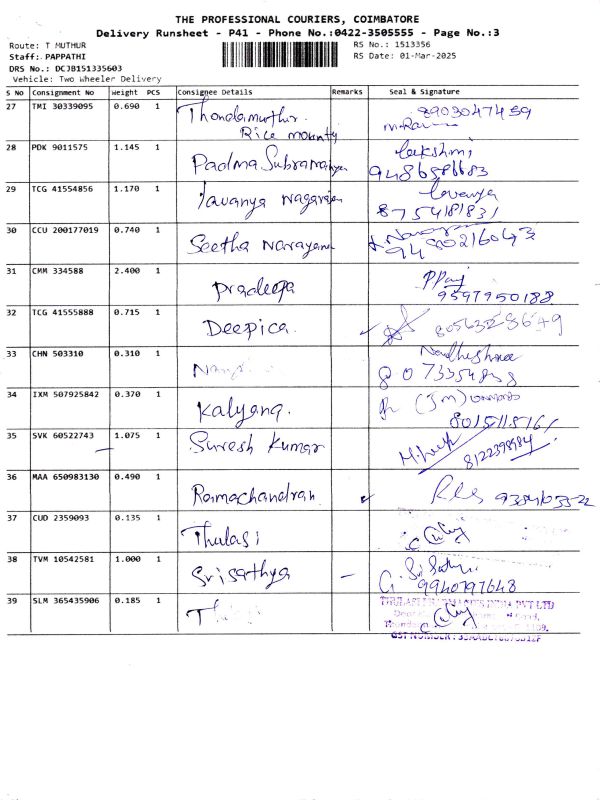 THE PROFESSIONAL COURIERS, COIMBATORE
Delivery Runsheet - P41 - Phone No.:0422-3505555 - Page No.:3
Route: T MUTHUR
RS No.: 1513356
Staff: PAPPATHI
RS Date: 01-Mar-2025
DRS No.: DCJB151335603
Vehicle: Two Wheeler Delivery
S No Consignment No Weight PCS Consignee Details Remarks Seal & Signature
27 TMI 30339095 0.690 1 Thondamuthur 8903047459
Rice mounty
28 PDK 9011575 1.145 1 Padma Subramanyan Lakshmi
9486586683
29 TCG 41554856 1.170 1 Lavanya Nagarajan Lavanya
8754181831
30 CCU 200177019 0.740 1 Seetha Narayana
9480216043
31 CMM 334588 2.400 1 Pradeepa
9597950188
32 TCG 41555888 0.715 1 Deepica.
33 CHN 503310 0.310 1
34 IXM 507925842 0.370 1 Kalyana.
8015115161
35 SVK 60522743 1.075 1 Suresh Kumar
8122398984
36 MAA 650983130 0.490 1 Ramachandran
37 CUD 2359093 0.135 1 Thulasi
38 TVM 10542581 1.000 1 Srisathya G. Sri Sathya
9940797648
39 SLM 365435906 0.185 1
PVT LTD
GST NUMBER